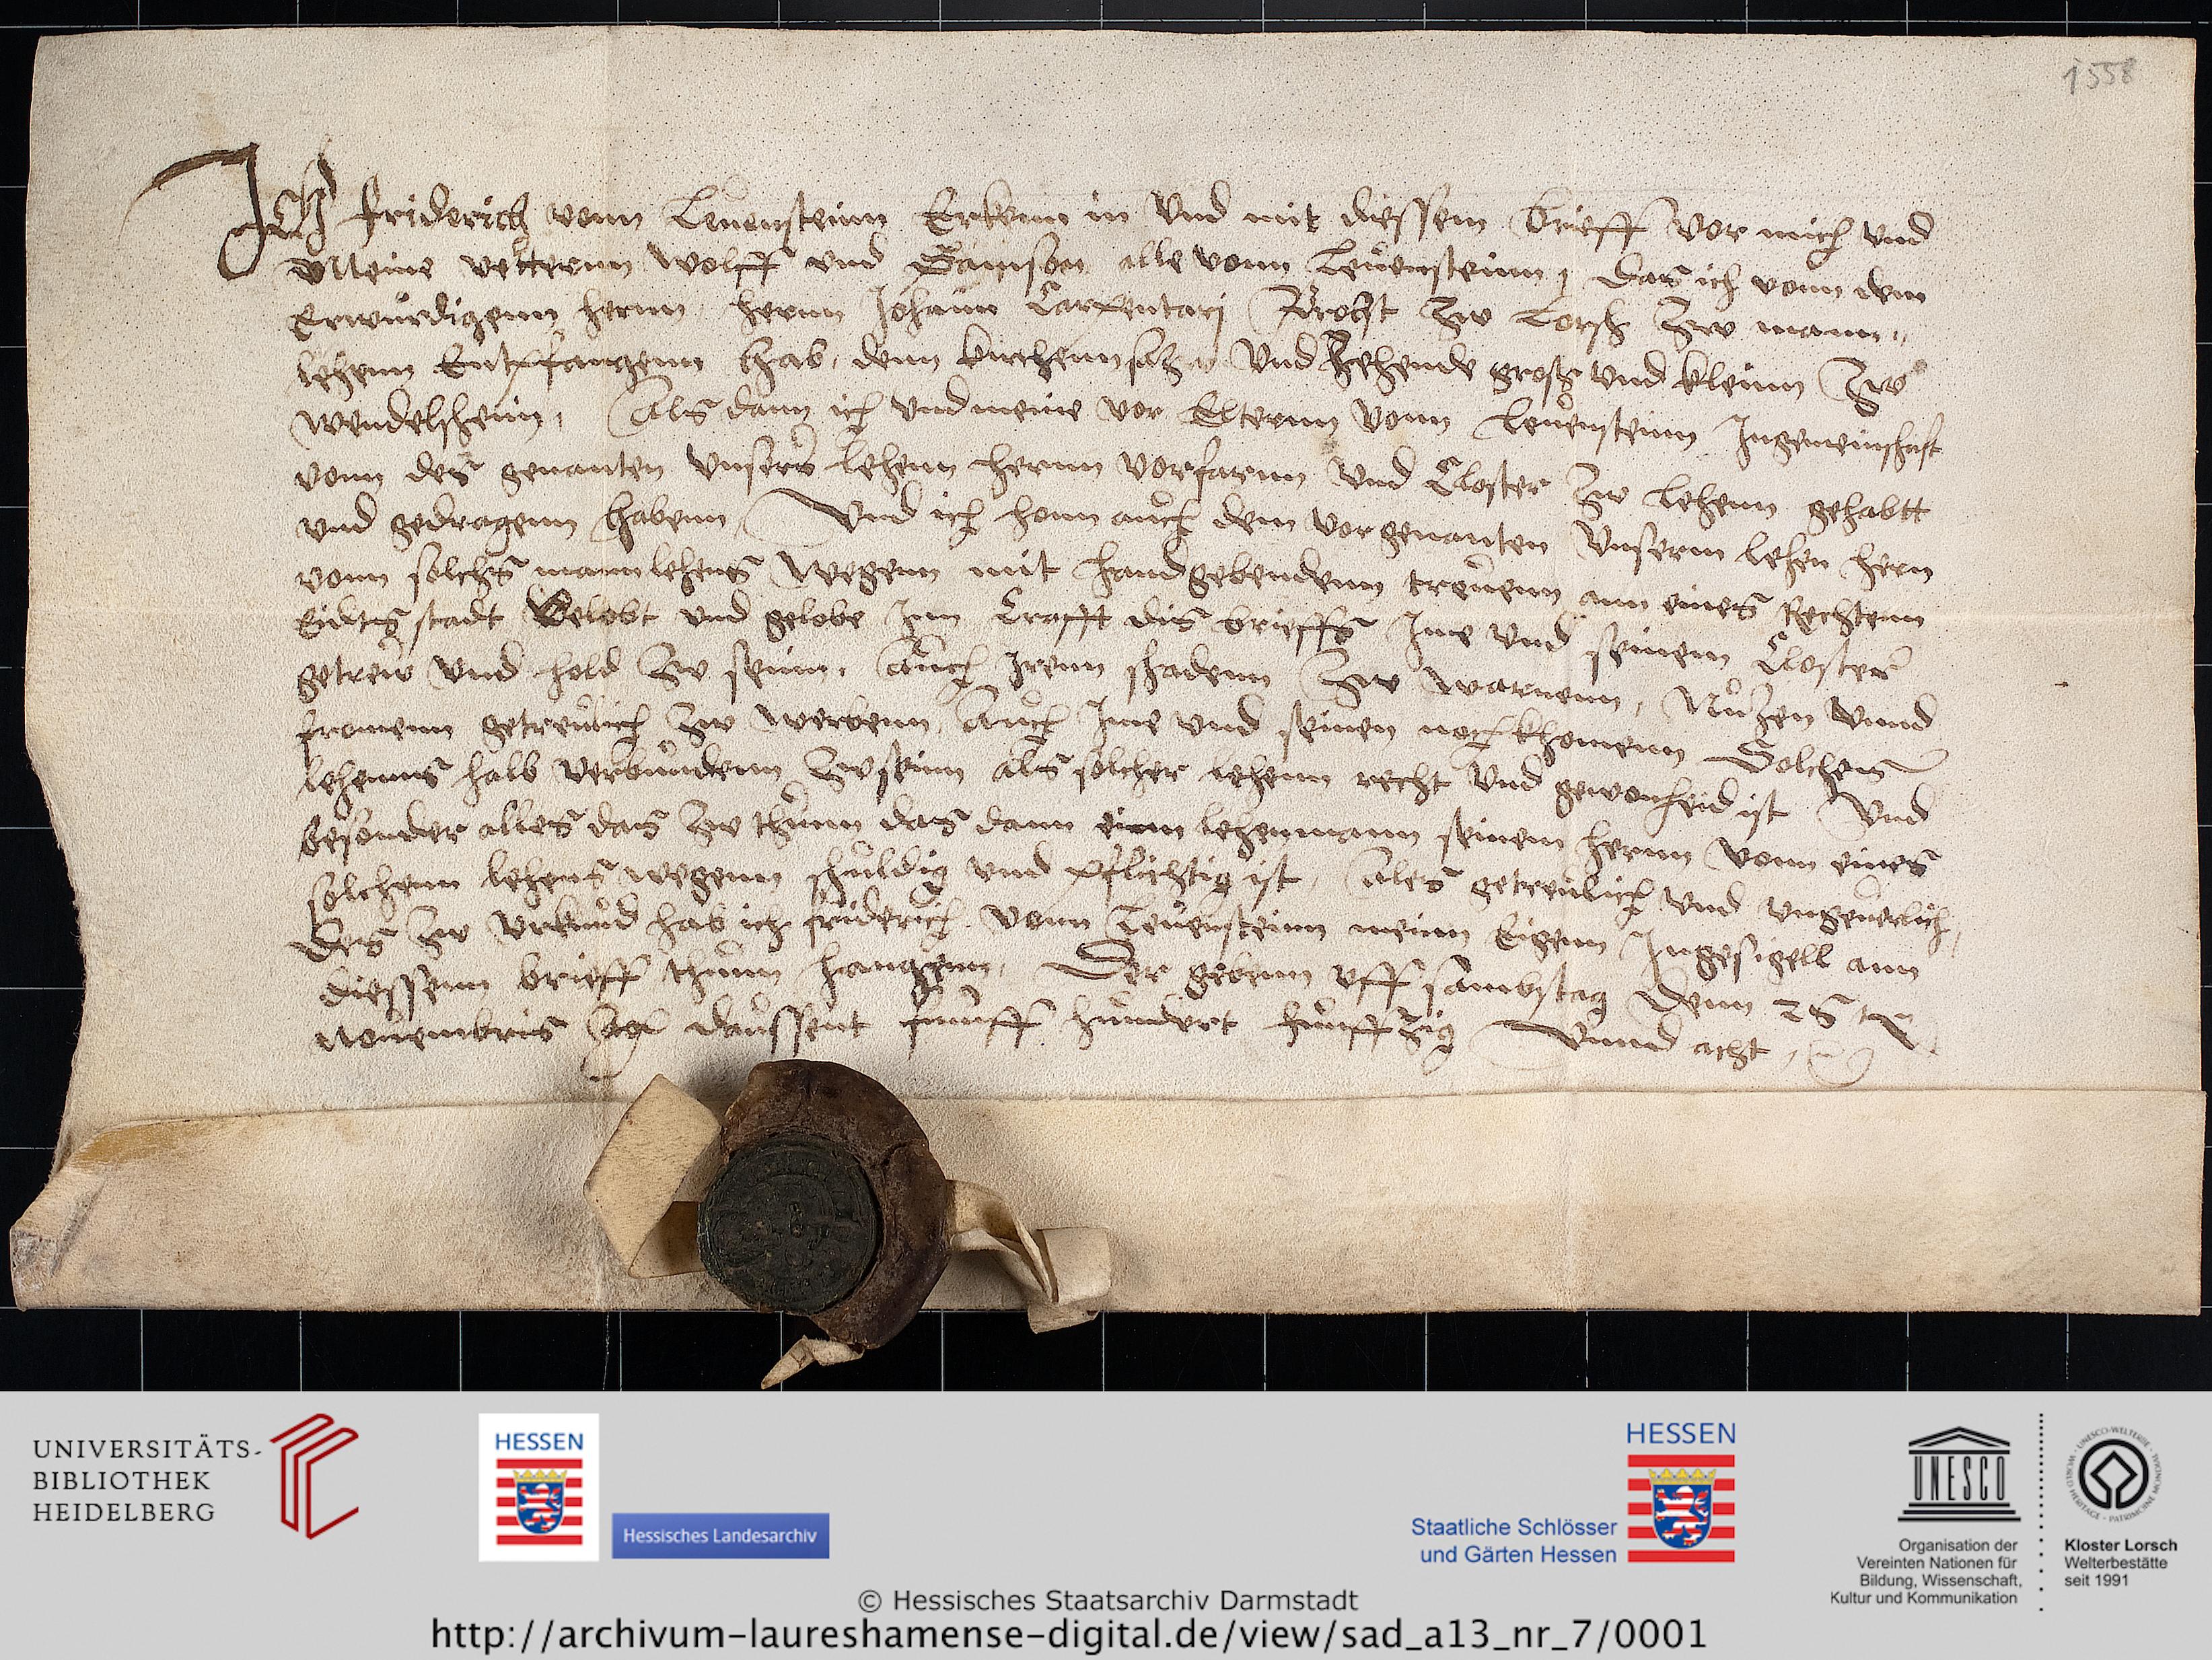 1558
Ich friderich vonn Leuensteinn Erkenn in vnd mit diessem brieff vor mich vnd
Meine vetternn Wolff vnd Samson alle vonn Leuensteinn, das ich vonn dem
Erwurdigenn hernn, hernn Johann Carpentarj Probst zw Lorsh zw mann„
lehenn Entpfangenn hab, denn kirchennsatz vnd Zehende gross vnd kleinn zw
wendelsheim, Als dann ich vnd meine vor Elternn vonn Leuensteinn Ingemeinschaft
vonn des genanten vnsers lehenn hernn vorfarnn vnd Closter zw lehenn gehabtt
vnd gedragenn habenn, Vnd ich honn auch dem vorgenanten vnserm lehen hern
vonn solchs mannlehens wegenn mit handgebendenn treuenn ann eines Rechtenn
Eidts stadt Gelobt vnd gelobe Inn Crafft dis brieffs Ime vnd seinem Closter
getrew vnd hold zw seinn, Auch Irenn shadenn zw warnenn, Nutzen vnnd
fromenn getreulich zw werbenn, Auch Ime vnd seinen nochkhomenn Solchens
lehenns halb verbundenn zw seinn als solcher lehenn recht vnd gewonheid ist Vnd
besonder alles das zw thunn das dann einn lehenmann seinem hernn vonn eines
solchenn lehens wegenn shuldig vnd pflichtig ist, Ales getreulich vnd vngeuerlich,
Des zw vrkund hab ich friderich vonn Leuensteinn meinn Eigenn Ingesigell ann
diessenn brieff thunn hangenn, Der gebenn vff sambstag denn
Nouembris daussent funff hundert funffzig Vnnd acht,
UNIVERSITÄTS-
BIBLIOTHEK
HEIDELBERG
HESSEN
Hessisches Landesarchiv
HESSEN
Staatliche Schlösser
und Gärten Hessen
UNESCO
Organisation der
Vereinten Nationen für
Bildung, Wissenschaft,
Kultur und Kommunikation
Kloster Lorsch
Welterbestätte
seit 1991
© Hessisches Staatsarchiv Darmstadt
http://archivum-laureshamense-digital.de/view/sad_a13_nr_7/0001